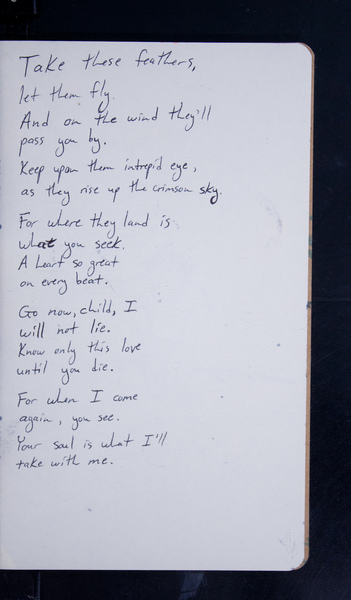 Take these feathers,
let them fly.
And on the wind they'll
pass you by.
Keep upon them intrepid eye,
as they rise up the crimson sky.
For where they land is
what you seek.
A heart so great
on every beat.
Go now, child, I
will not lie.
Know only this love
until you die.
For when I come
again, you see.
Your soul is what I'll
take with me.